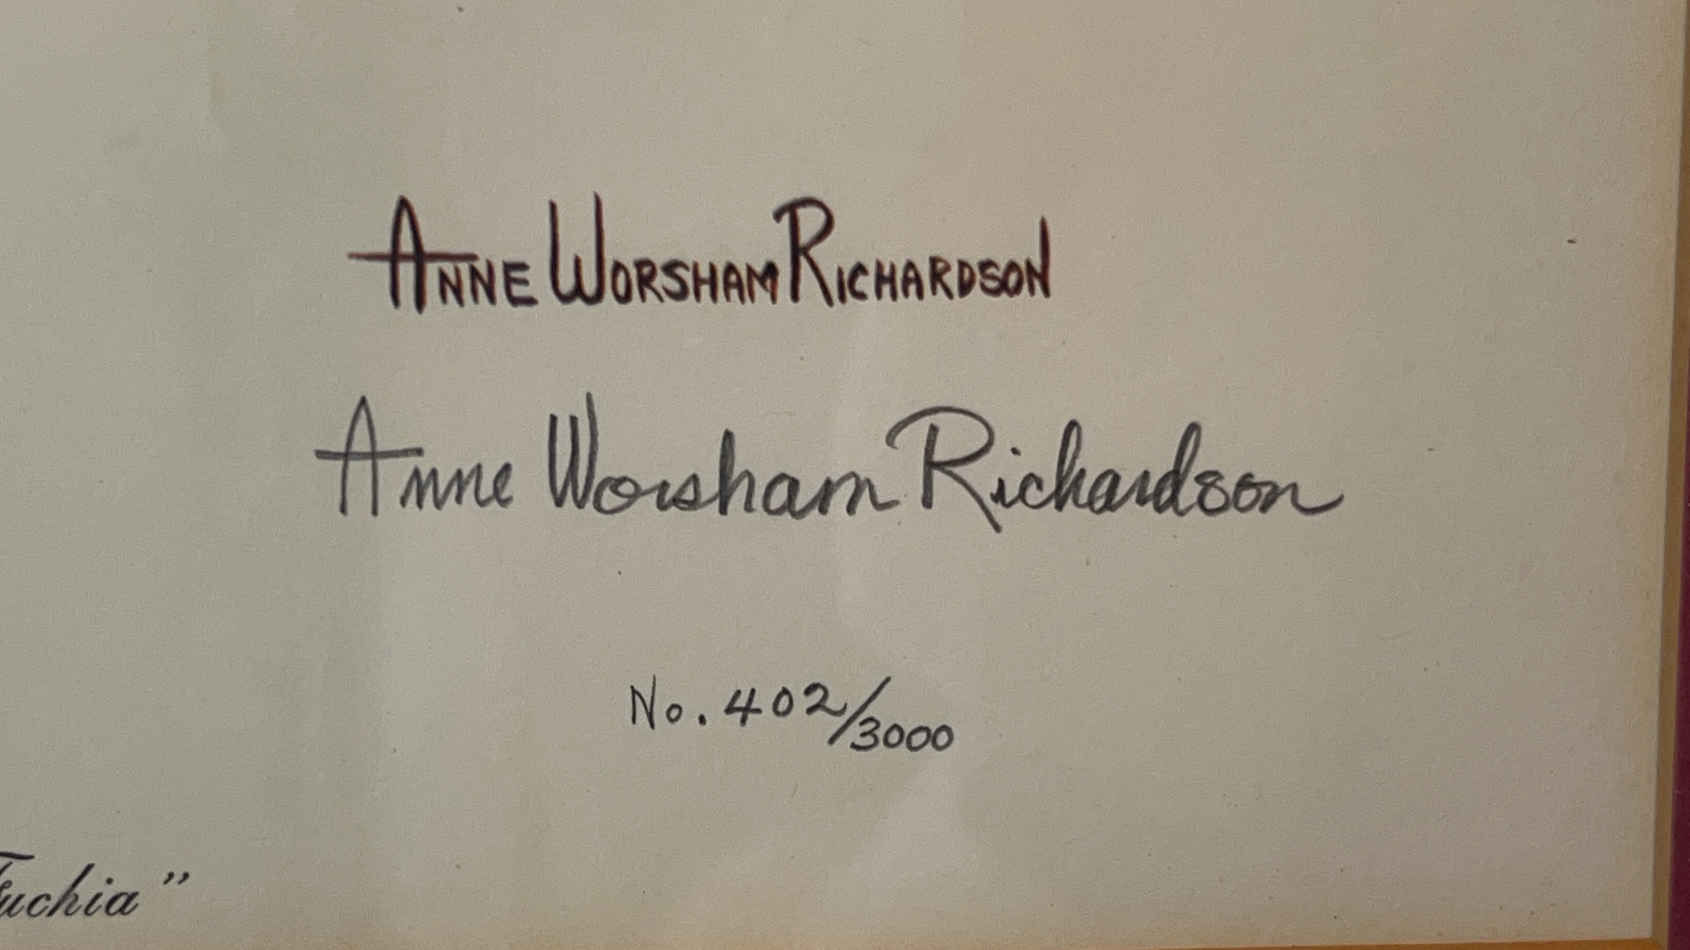 ANNE WORSHAM RICHARDSON
Anne Worsham Richardson
No. 402/3000
Fuchia”